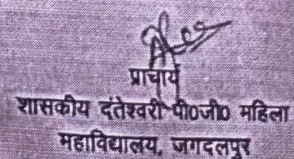 प्राचार्य
शासकीय दंतेश्वरी पी0जी0 महिला
महाविद्यालय, जगदलपुर